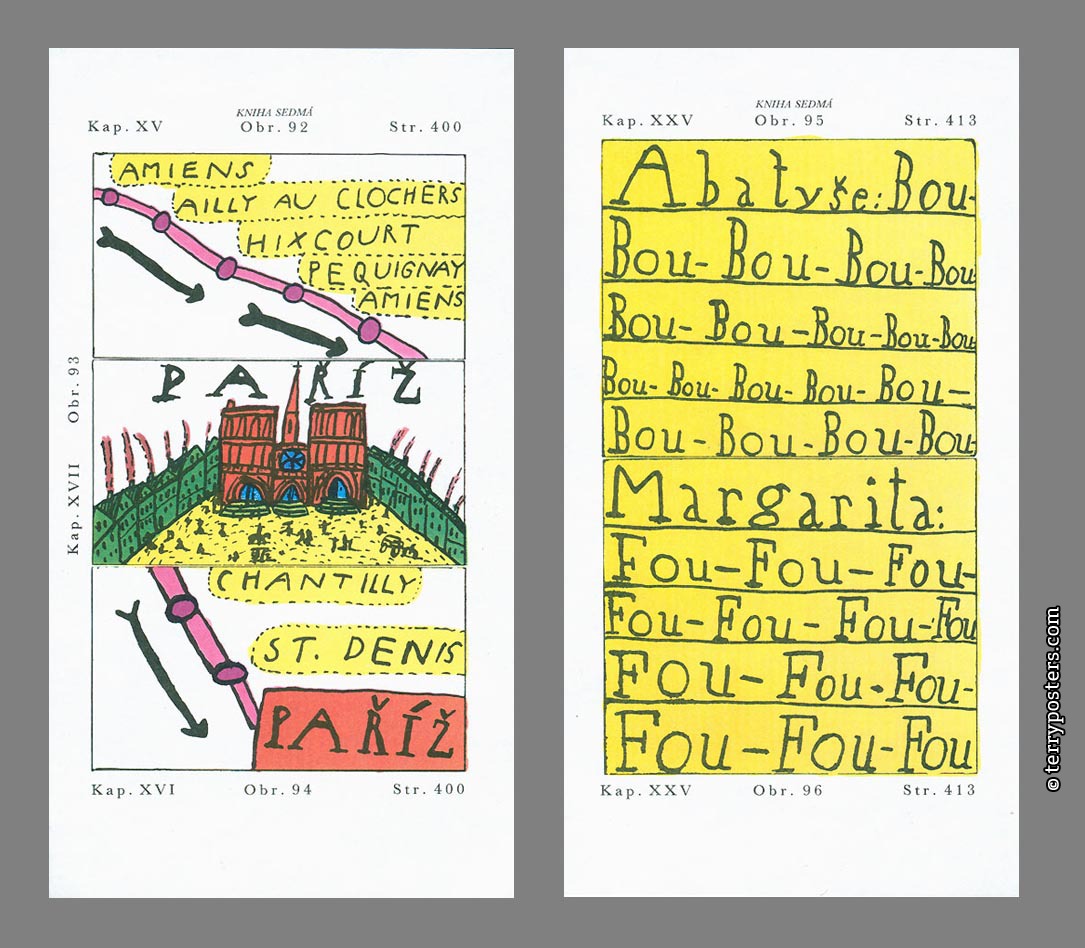 KNIHA SEDMÁ
Kap. XV Obr. 92 Str. 400
AMIENS
AILLY AU CLOCHERS
HIXCOURT
PEQUIGNAY
AMIENS
Kap. XVII Obr. 93
PAŘÍŽ
CHANTILLY
ST. DENIS
PAŘÍŽ
Kap. XVI Obr. 94 Str. 400
KNIHA SEDMÁ
Kap. XXV Obr. 95 Str. 413
Abatyše: Bou-
Bou- Bou- Bou- Bou
Bou- Bou- Bou- Bou- Bou
Bou- Bou- Bou- Bou- Bou-
Bou- Bou- Bou- Bou-
Margarita:
Fou- Fou- Fou-
Fou- Fou- Fou- Fou
Fou- Fou- Fou-
Fou- Fou- Fou
Kap. XXV Obr. 96 Str. 413
© terryposters.com